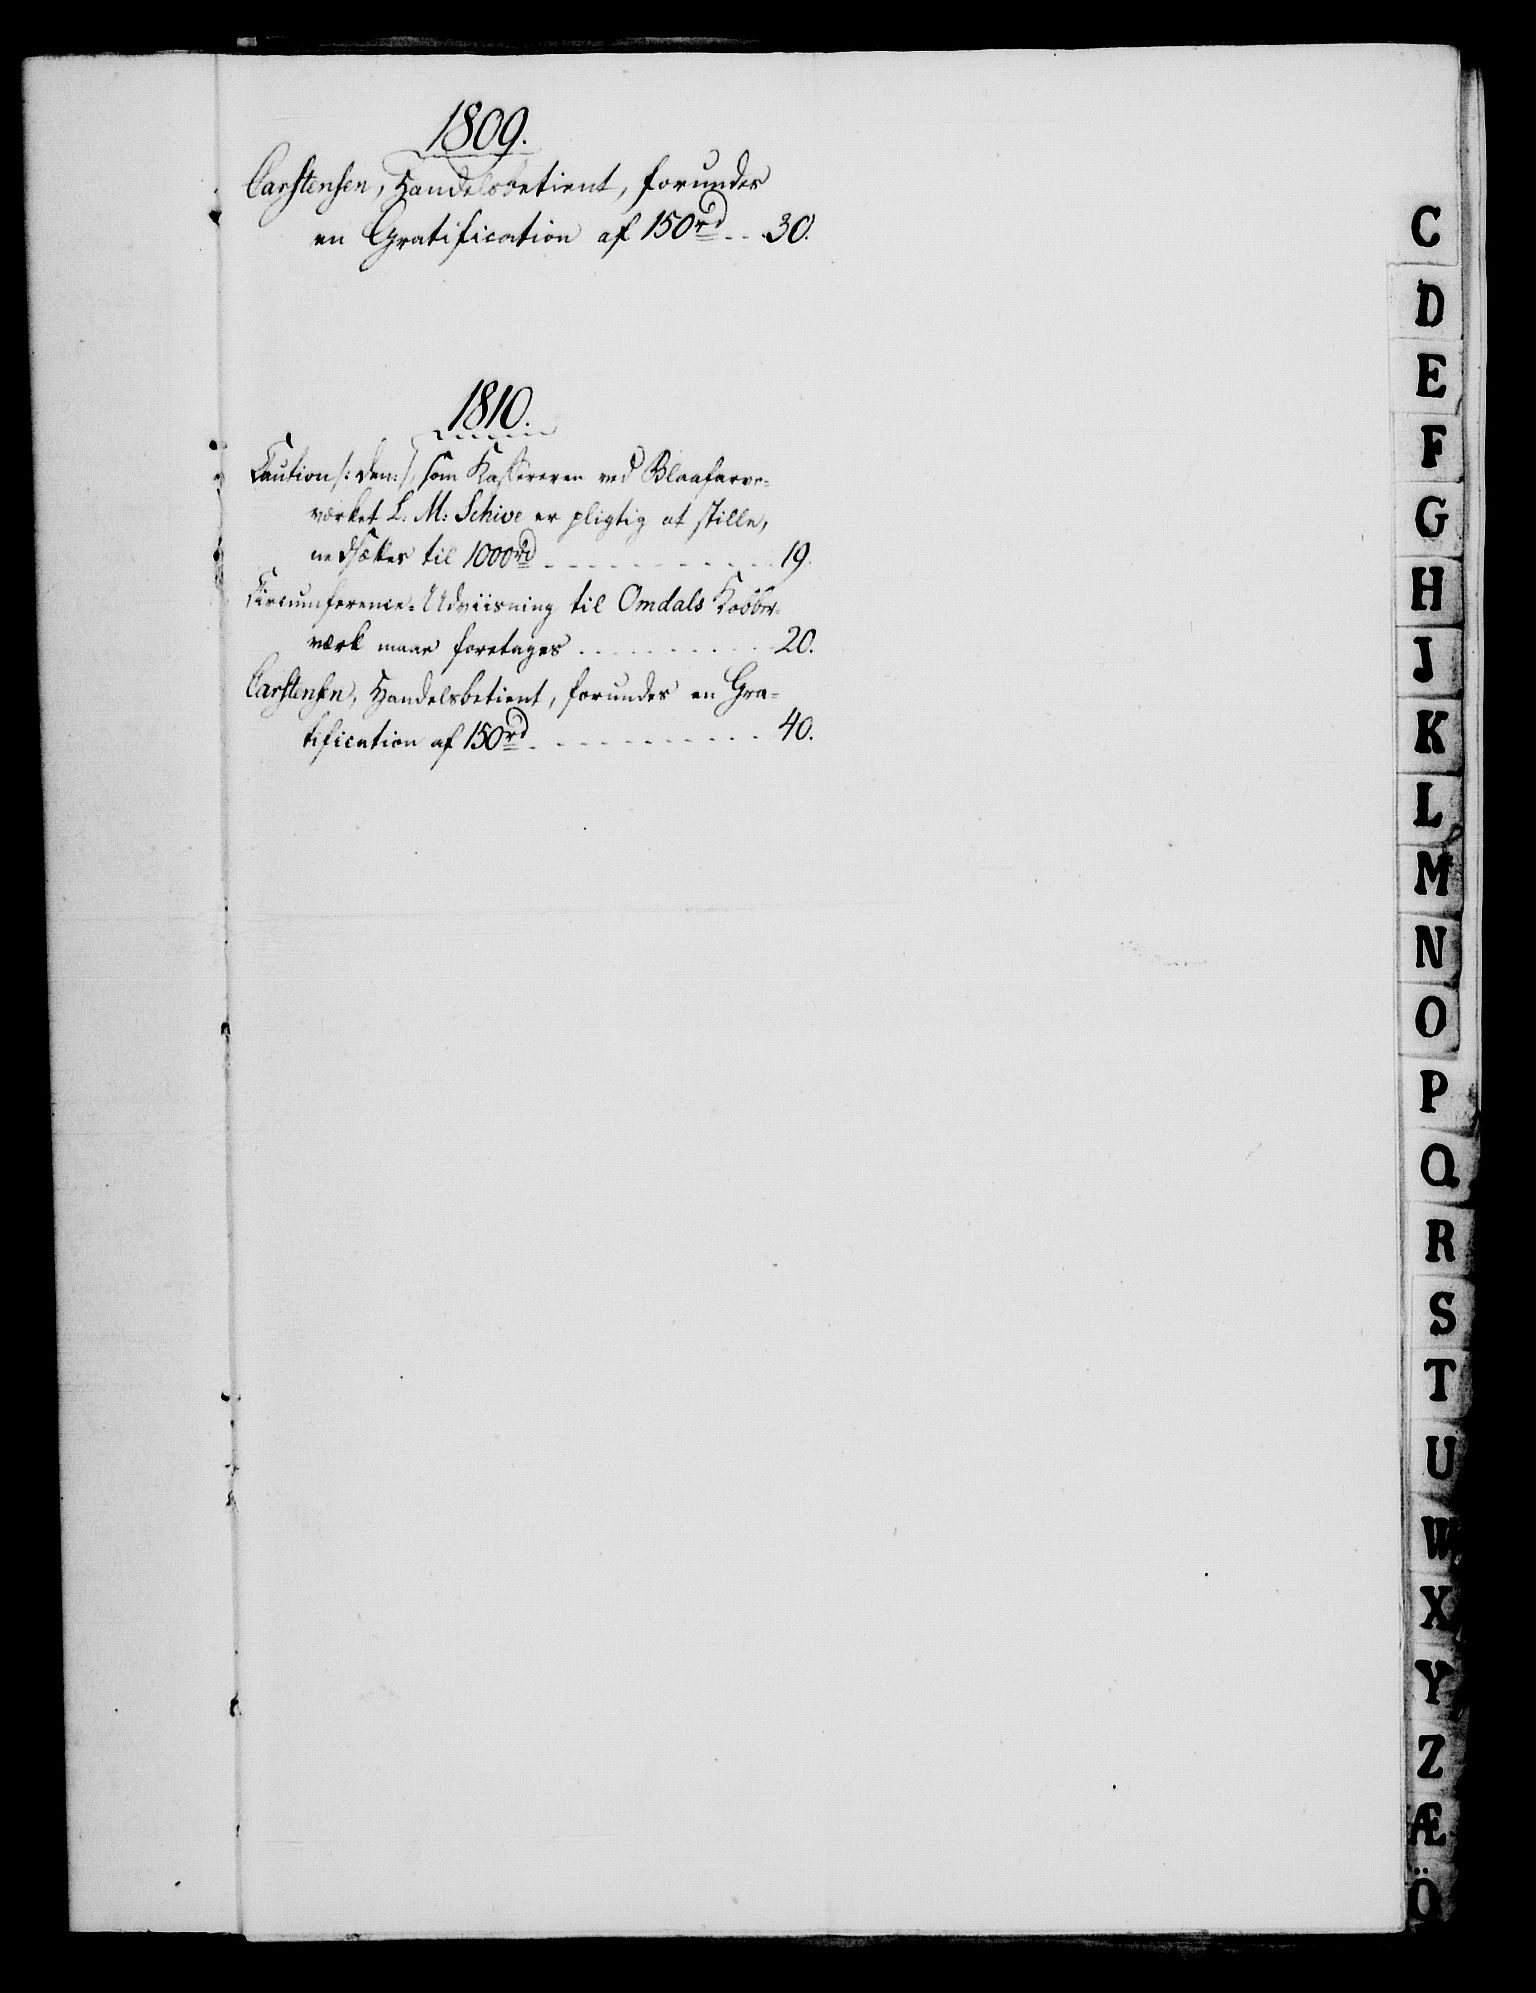 1809.
Carstensen, Handelsbetient, forundes
en Gratification af 150 rd .. 30.
1810.
Caution /: den :/ som Kassereren ved Blaafarve-
værket L: M: Schive er pligtig at stille,
nedsættes til 1000 rd . . . . . . . . . . 19.
Circumference-Udviisning til Omdals Kobber-
værk maae foretages . . . . . . . . . 20.
Carstensen, Handelsbetient, forundes en Gra-
tification af 150 rd . . . . . . . . . . . 40.
C
D
E
F
G
H
J
K
L
M
N
O
P
Q
R
S
T
U
W
X
Y
Z
Æ
Ö